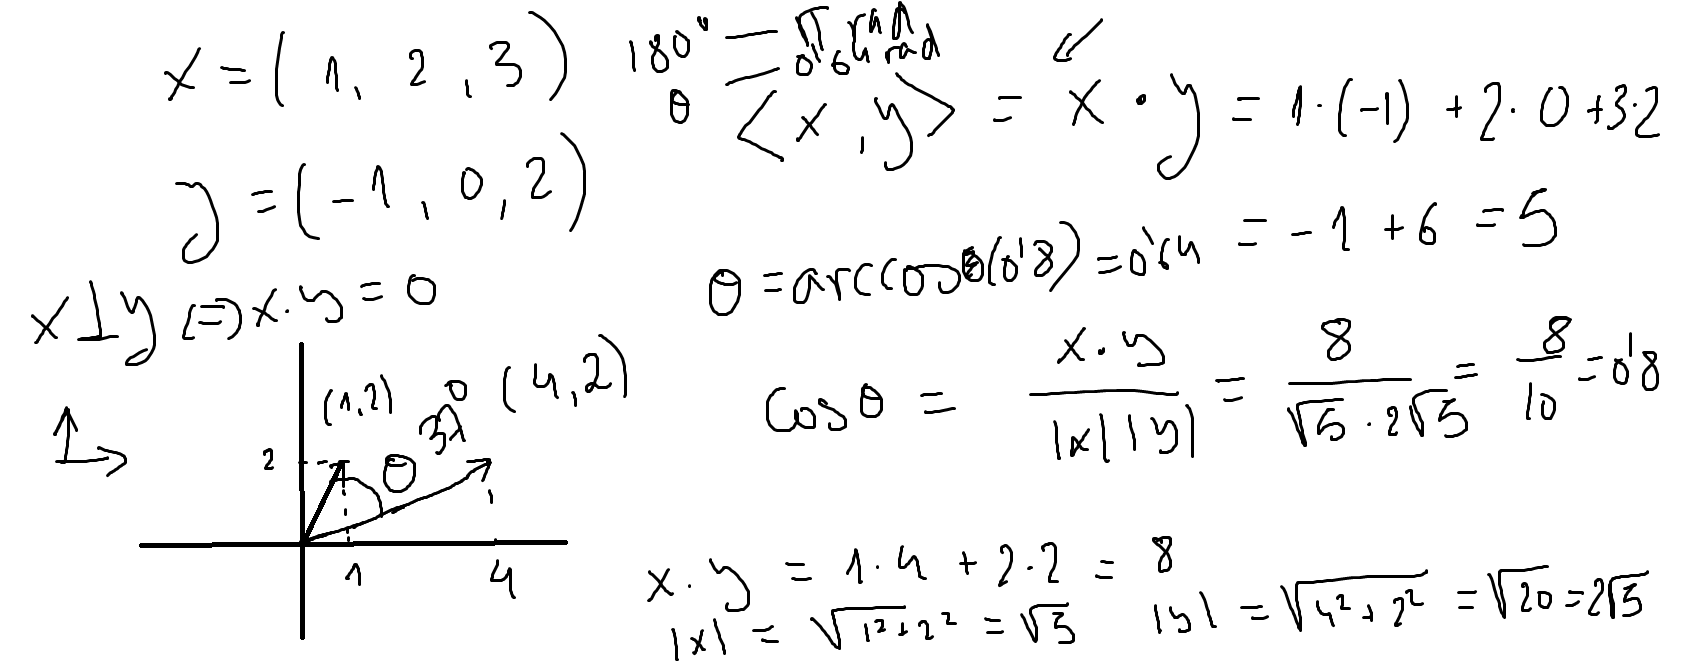 x = ( 1, 2, 3)
y = (-1, 0, 2)
x⊥y (=) x·y = 0
180° — π rad
θ — 0'64 rad
<x, y> = x · y = 1·(-1) + 2·0 + 3·2
= -1 + 6 = 5
θ = arccos(0'8) = 0'64
cos θ = x·y / |x| |y| = 8 / √5 · 2√5 = 8/10 = 0'8
(1,2)
(4,2)
θ
2
1
4
x·y = 1·4 + 2·2 = 8
|x| = √1²+2² = √5
|y| = √4²+2² = √20 = 2√5